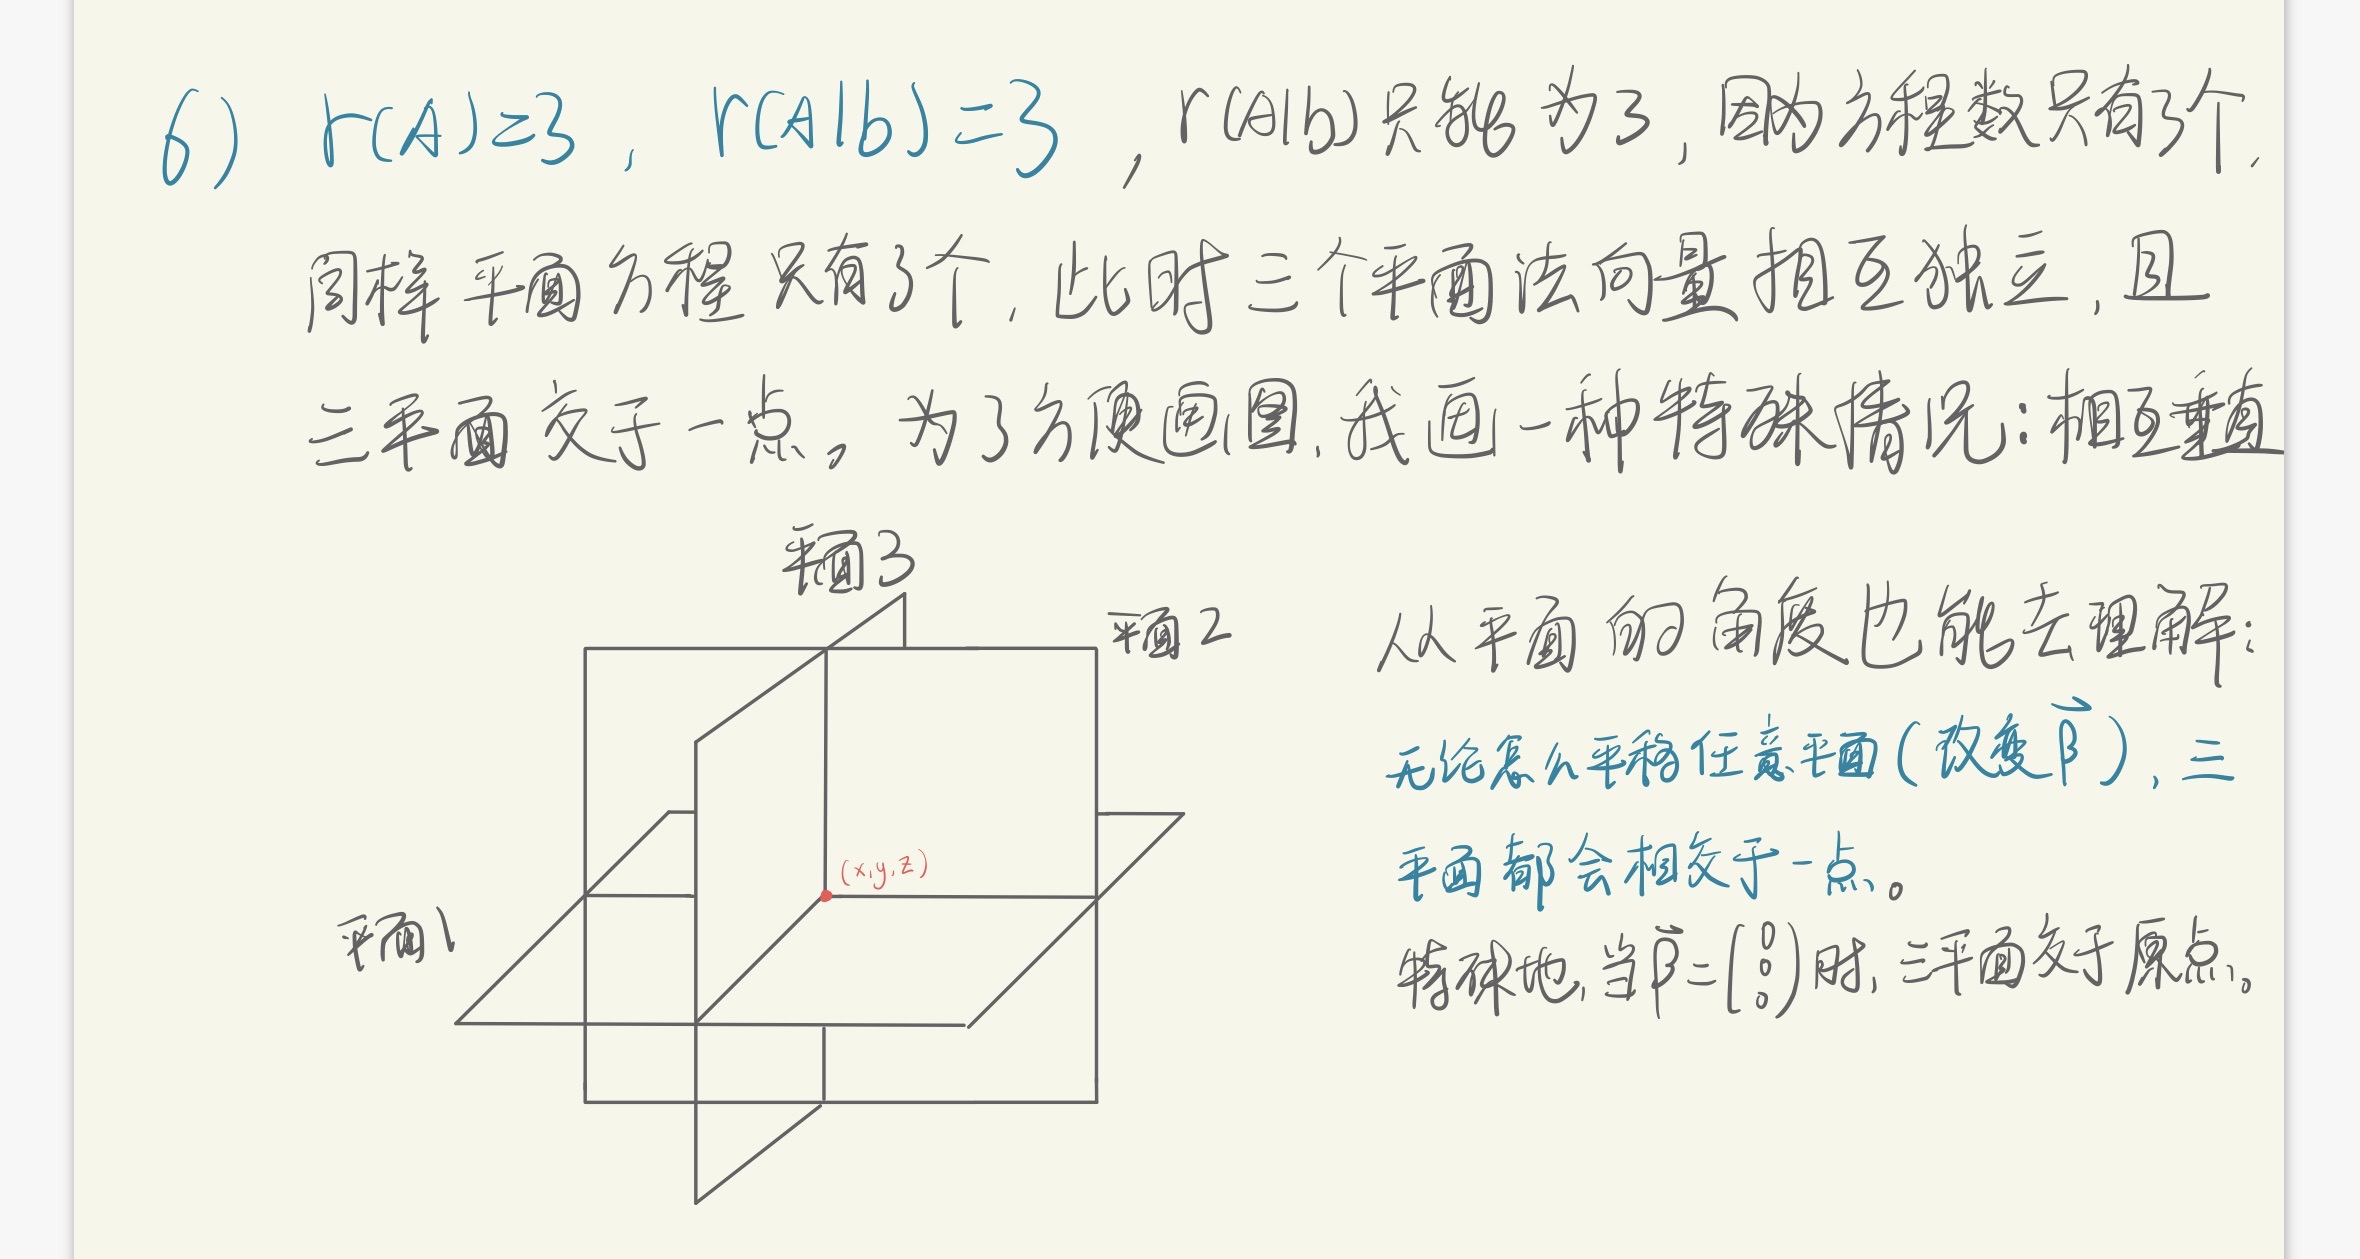 6) r(A)=3, r(A|b)=3, r(A|b)只能为3,因为方程数只有3个.
同样平面方程只有3个.此时三个平面法向量相互独立,且
三平面交于一点。为了方便画图.我画一种特殊情况:相互垂直
平面3
平面2
从平面的角度也能去理解:
无论怎么平移任意平面(改变β⃗),三
(x,y,z)
平面都会相交于一点。
平面1
特殊地,当β⃗=(0 0 0)时,三平面交于原点。